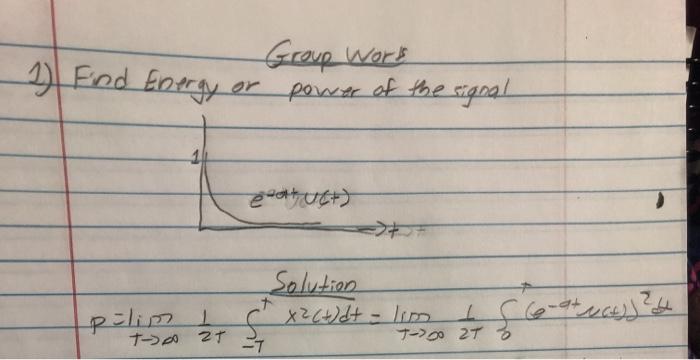 Group Work
1) Find Energy or power of the signal
1
e^-at u(t)
→t
Solution
P = lim T→∞ 1/2T ∫_-T^T x²(t)dt = lim T→∞ 1/2T ∫_0^T (e^-at u(t))² dt